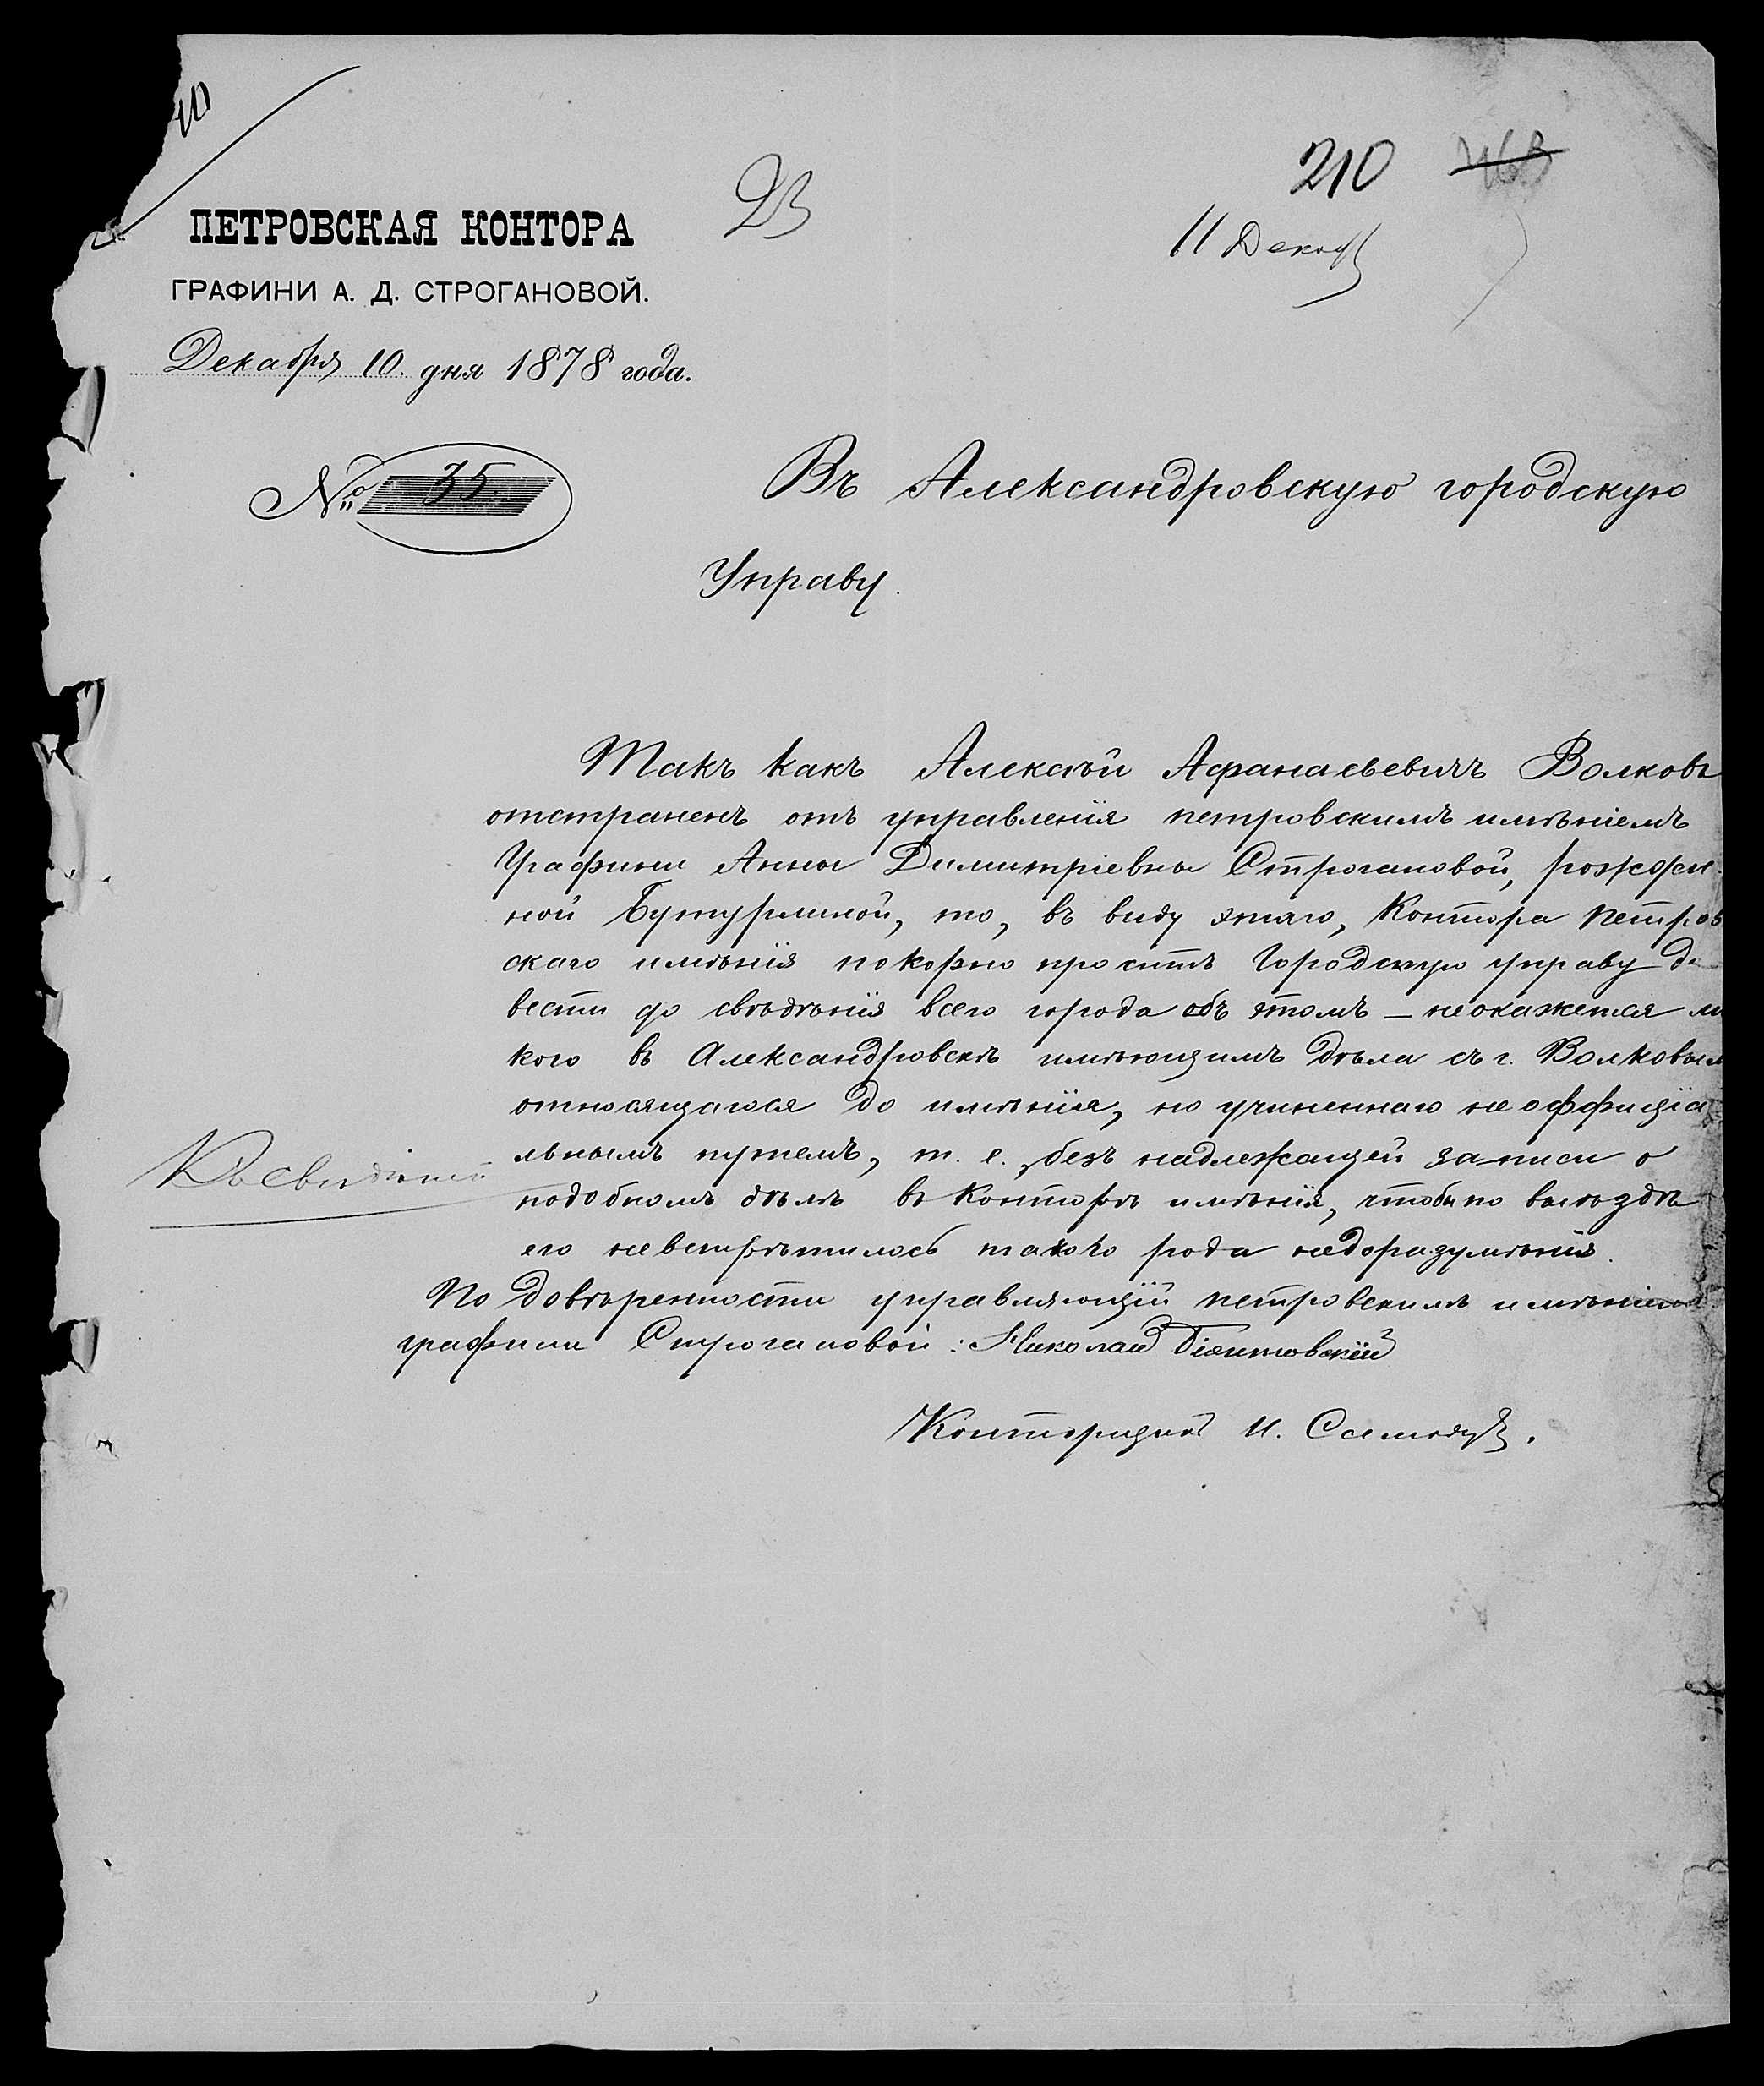 210
11 Декаб
23
ПЕТРОВСКАЯ КОНТОРА
ГРАФИНИ А. Д. СТРОГАНОВОЙ.
Декабря 10. дня 1878 года.
№ 35.
Въ Александровскую городскую
Управу.
Такъ какъ Алексѣй Афанасьевичъ Волковъ
отстраненъ отъ управленія петровскимъ имѣніемъ
Графини Анны Димитріевны Строгановой, рожден
ной Бутурлиной, то, въ виду этаго, Контора петров
скаго имѣнія покорно проситъ Городскую управу до
вести до свѣдѣнія всего города объ этомъ — неокажется ли
кого въ Александровскѣ имѣющимъ дѣла съ г. Волковым
относящагося до имѣнія, но учиненнаго не оффиціа
льнымъ путемъ, т. е. безъ надлежащей записи о
подобномъ дѣлѣ въ Конторѣ имѣнія, чтобы по выѣздѣ
его невстрѣтилось такого рода недоразумѣнія.
Къ свѣдѣнію
По довѣренности управляющій петровскимъ имѣніемъ
графини Строгановой: Николай
Конторщикъ И.